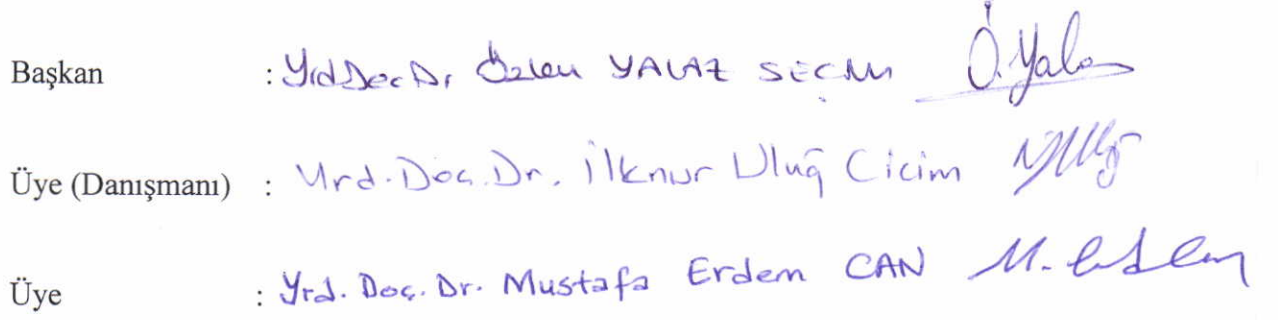 Başkan : Yrd Doc Dr Özlem YALAZ SEÇİM Ö.Yalaz
Üye (Danışmanı) : Yrd.Doç.Dr. İlknur Uluğ Cicim
Üye : Yrd. Doç. Dr. Mustafa Erdem CAN M. Erdem